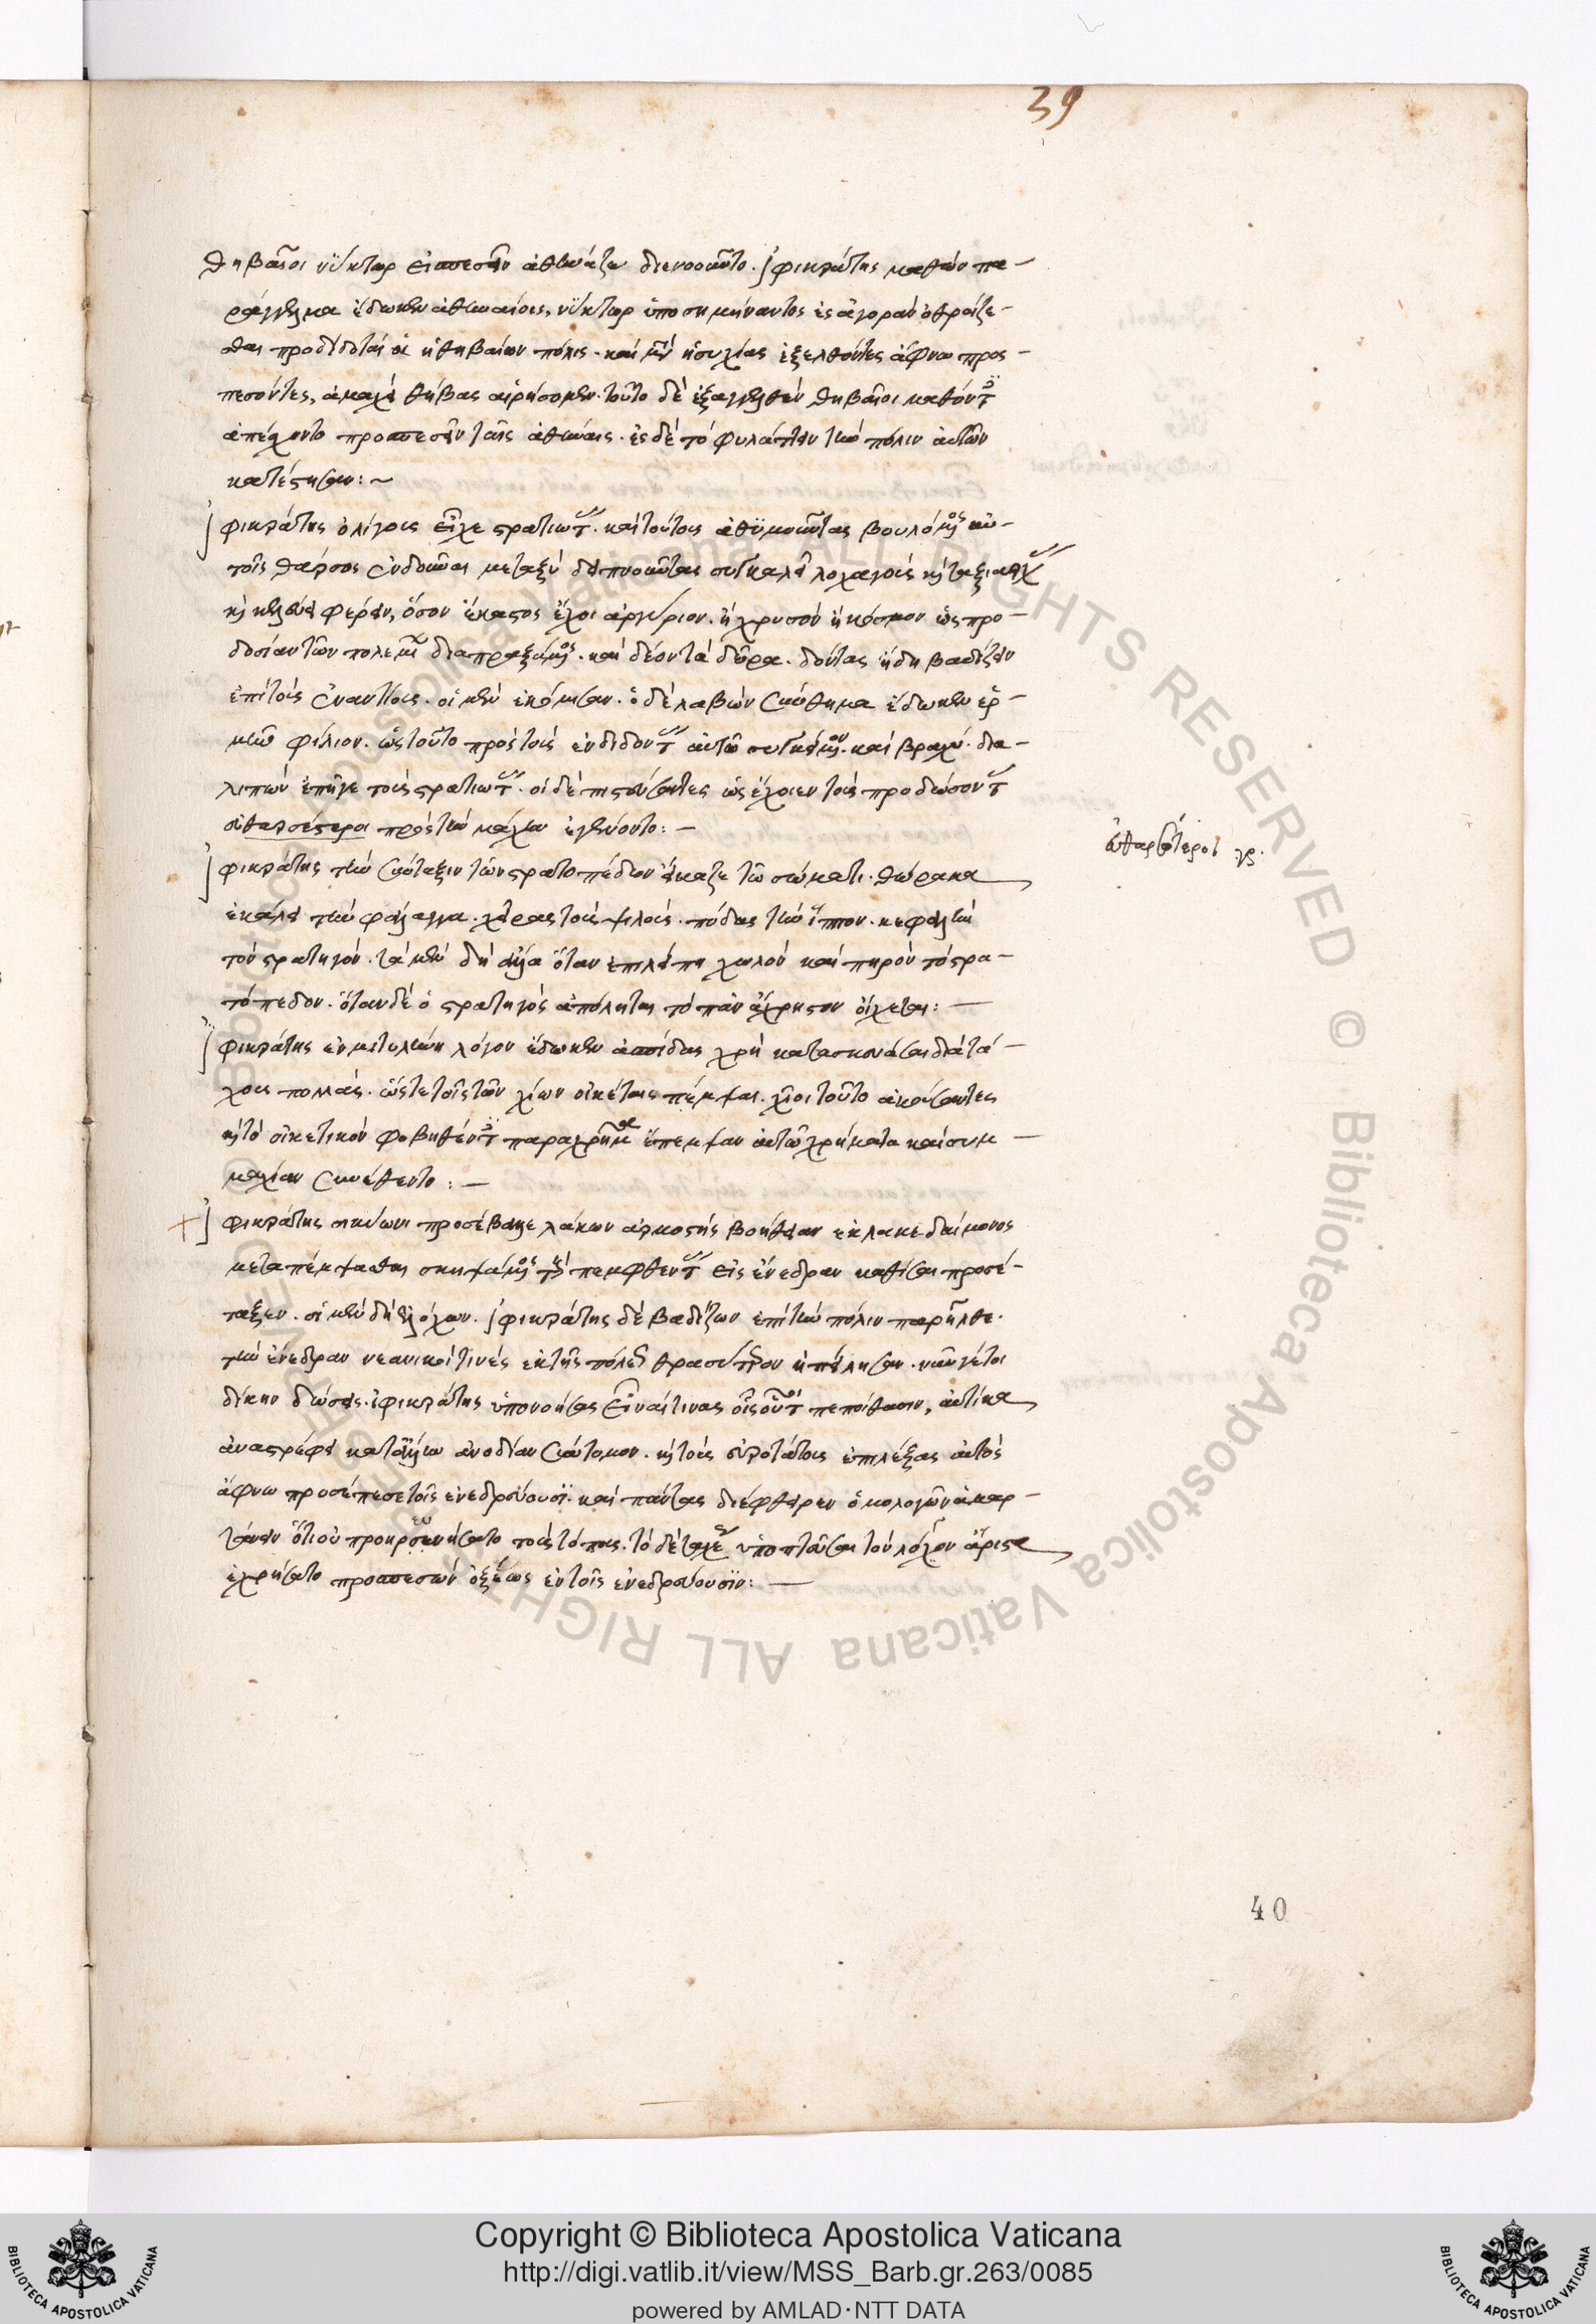 39
θηβαῖοι νύκτωρ εἰσπεσεῖν ἀθήναζε διενοοῦντο. ἰφικράτης μαθὼν πα-
ράγγελμα ἔδωκεν ἀθηναίοις, νύκτωρ ὑποσημήναντος ἐς ἀγορὰν ἀθροίζε-
σθαι προδίδοται οἱ ἡ θηβαίων πόλις. καὶ μεθ' ἡσυχίας ἐξελθόντες ἄφνω προσ-
πεσόντες, ἀμαχεὶ θήβας αἱρήσομεν. τοῦτο δὲ ἐξαγγελθὲν θηβαῖοι μαθόντες
ἀπέσχοντο προσπεσεῖν ταῖς ἀθήναις. ἐς δὲ τὸ φυλάττειν τὴν πόλιν αὐτῶν
κατέστησαν: ~
ἰφικράτης ὀλίγους εἶχε στρατιώτας. καὶ τούτους ἀθυμοῦντας βουλόμενος αὐ-
τοῖς θάρσος ἐνδοῦναι μεταξὺ δειπνοῦντας συγκαλεῖ λοχαγοὺς καὶ ταξιάρχας
καὶ κελεύει φέρειν, ὅσον ἕκαστος ἔχοι ἀργύριον. ἢ χρυσὸν ἢ κόσμον ὡς προ-
δοσίαν τῶν πολεμίων διαπραξάμενος. καὶ δέοντα δῶρα. δόντας ἤδη βαδίζειν
ἐπὶ τοὺς ἐναντίους. οἱ μὲν ἐκόμισαν. ὁ δὲ λαβὼν σύνθημα ἔδωκεν ἑρ-
μῆν φίλιον. ὡς τοῦτο πρὸς τοὺς ἐνδιδόντας αὐτῷ συγκείμενον. καὶ βραχὺ δια-
λιπὼν ἐπῆγε τοὺς στρατιώτας. οἱ δὲ πιστεύσαντες ὡς ἔχοιεν τοὺς προδώσοντας
εὐθαρσέστεροι πρὸς τὴν μάχην ἐγένοντο: -
εὐθαρσότεροι γρ.
ἰφικράτης τὴν σύνταξιν τῶν στρατοπέδων εἴκαζε τῷ σώματι. θώρακα
ἐκάλει τὴν φάλαγγα. χεῖρας τοὺς ψιλούς. πόδας τὴν ἵππον. κεφαλὴν
τὸν στρατηγόν. τὰ μὲν δὴ ἄλλα ὅταν ἐπιλείπῃ χωλὸν καὶ πηρὸν τὸ στρα-
τόπεδον. ὅταν δὲ ὁ στρατηγὸς ἀπόληται τὸ πᾶν ἄχρηστον οἴχεται: -
ἰφικράτης ἐν μιτυλήνῃ λόγον ἔδωκεν ἀσπίδας χρὴ κατασκευάσαι διὰ τά-
χους πολλάς. ὥστε τοῖς τῶν χίων οἰκέταις πέμψαι. χῖοι τοῦτο ἀκούσαντες
καὶ τὸ οἰκετικὸν φοβηθέντες παραχρῆμα ἔπεμψαν αὐτῷ χρήματα καὶ συμ-
μαχίαν συνέθεντο: -
ἰφικράτης σικυῶνι προσέβαλε λάκων ἁρμοστὴς βοήθειαν ἐκ λακεδαίμονος
μεταπέμψασθαι σκηψάμενος τοὺς πεμφθέντας εἰς ἐνέδραν καθίσαι προσέ-
ταξεν. οἱ μὲν δὴ ἐλόχων. ἰφικράτης δὲ βαδίζων ἐπὶ τὴν πόλιν παρῆλθε
τὴν ἐνέδραν νεανικοί τινὲς ἐκ τῆς πόλεως θρασύτερον ἠπείλησαν. νῦν γέ τοι
δίκην δώσεις. ἰφικράτης ὑπονοήσας εἶναί τινας οἷς οὗτοι πεποίθασιν, αὐτίκα
ἀναστρέφει κατ' ἄλλην ἀνοδίαν σύντομον. καὶ τοὺς εὐρωτάτους ἐπιλέξας αὐτὸς
ἄφνω προσέπεσε τοῖς ἐνεδρεύουσι. καὶ πάντας διέφθειρεν ὁμολογῶν ἁμαρ-
τάνειν ὅτι οὐ προηρευνήσατο τοὺς τόπους. τὸ δὲ ταχέως ὑποπτεῦσαι τὸν λόχον ἄριστα
ἐχρήσατο προσπεσὼν ὀξέως ἐν τοῖς ἐνεδρεύουσιν: -
40
Copyright © Biblioteca Apostolica Vaticana
http://digi.vatlib.it/view/MSS_Barb.gr.263/0085
powered by AMLAD·NTT DATA